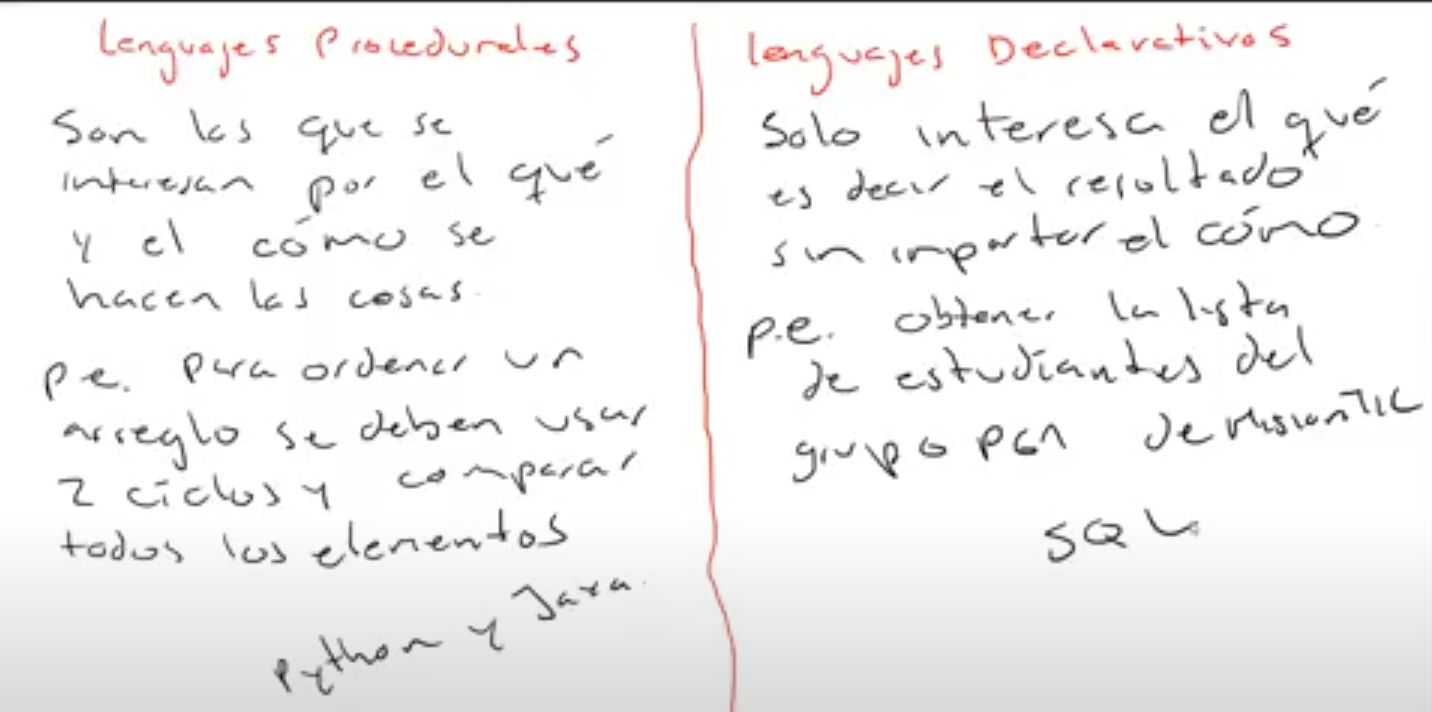 Lenguajes Procedurales
Son los que se
interesan por el qué
y el cómo se
hacen las cosas.
p.e. para ordenar un
arreglo se deben usar
2 ciclos y comparar
todos los elementos
Python y Java.
Lenguajes Declarativos
Solo interesa el qué
es decir el resultado
sin importar el cómo.
p.e. obtener la lista
de estudiantes del
grupo P61 de MisionTIC
SQL